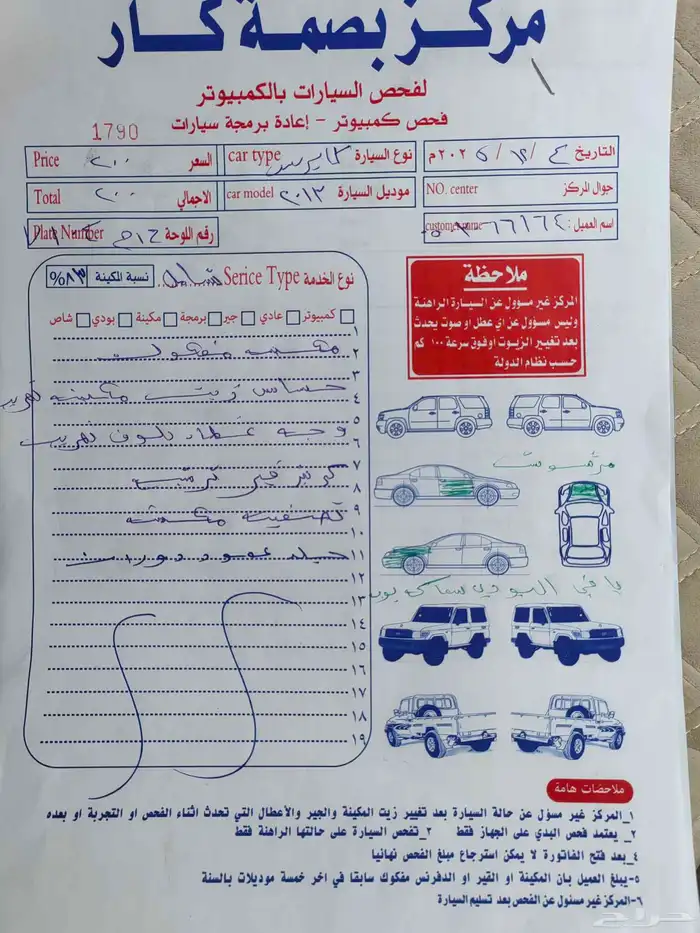 مركز بصمة كار
لفحص السيارات بالكمبيوتر
فحص كمبيوتر - إعادة برمجة سيارات
1790
التاريخ ٤ / ١٢ / ٢٠٢٥م
نوع السيارة car type
السعر ٢٠٠ Price
جوال المركز NO. center
موديل السيارة ٢٠١٣ car model
الاجمالي ٢٠٠ Total
اسم العميل: customer name
رقم اللوحة Plate Number
نوع الخدمة Serice Type شامل
نسبة المكينة ٨٣%
كمبيوتر عادي جير برمجة مكينة بودي شاص
١
٢ مكينة مفكوكت
٣
٤ حساس زيت مكينه تهريب
٥
٦ وجه غطاء بلوف تهريب
٧
٨
٩
١٠
١١
١٢
١٣
١٤
١٥
١٦
١٧
١٨
١٩
ملاحظة
المركز غير مسوول عن السيارة الراهنة
وليس مسؤول عن اي عطل او صوت يحدث
بعد تغيير الزيوت اوفوق سرعة ١٠٠ كم
حسب نظام الدولة
مرشوش
باقي البودي سماكه بويه
ملاحضات هامة
١_المركز غير مسؤل عن حالة السيارة بعد تغيير زيت المكينة والجير والأعطال التي تحدث اثناء الفحص او التجربة او بعده
٢_ يعتمد فحص البدي على الجهاز فقط ٢_تفحص السيارة على حالتها الراهنة فقط
٤_بعد فتح الفاتورة لا يمكن استرجاع مبلغ الفحص نهائيا
٥-يبلغ العميل بان المكينة او القير او الدفرنس مفكوك سابقا في اخر خمسة موديلات بالسنة
٦-المركز غير مسئول عن الفحص بعد تسليم السيارة
حراج